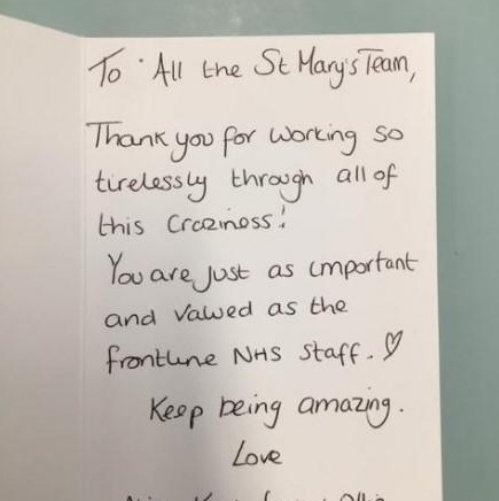 To All the St Mary's Team,
Thank you for working so
tirelessly through all of
this craziness!
You are just as important
and valued as the
frontline NHS staff. ♡
Keep being amazing.
Love